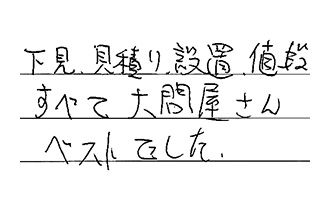 下見、見積り、設置、値段
すべて大問屋さん
ベストでした。